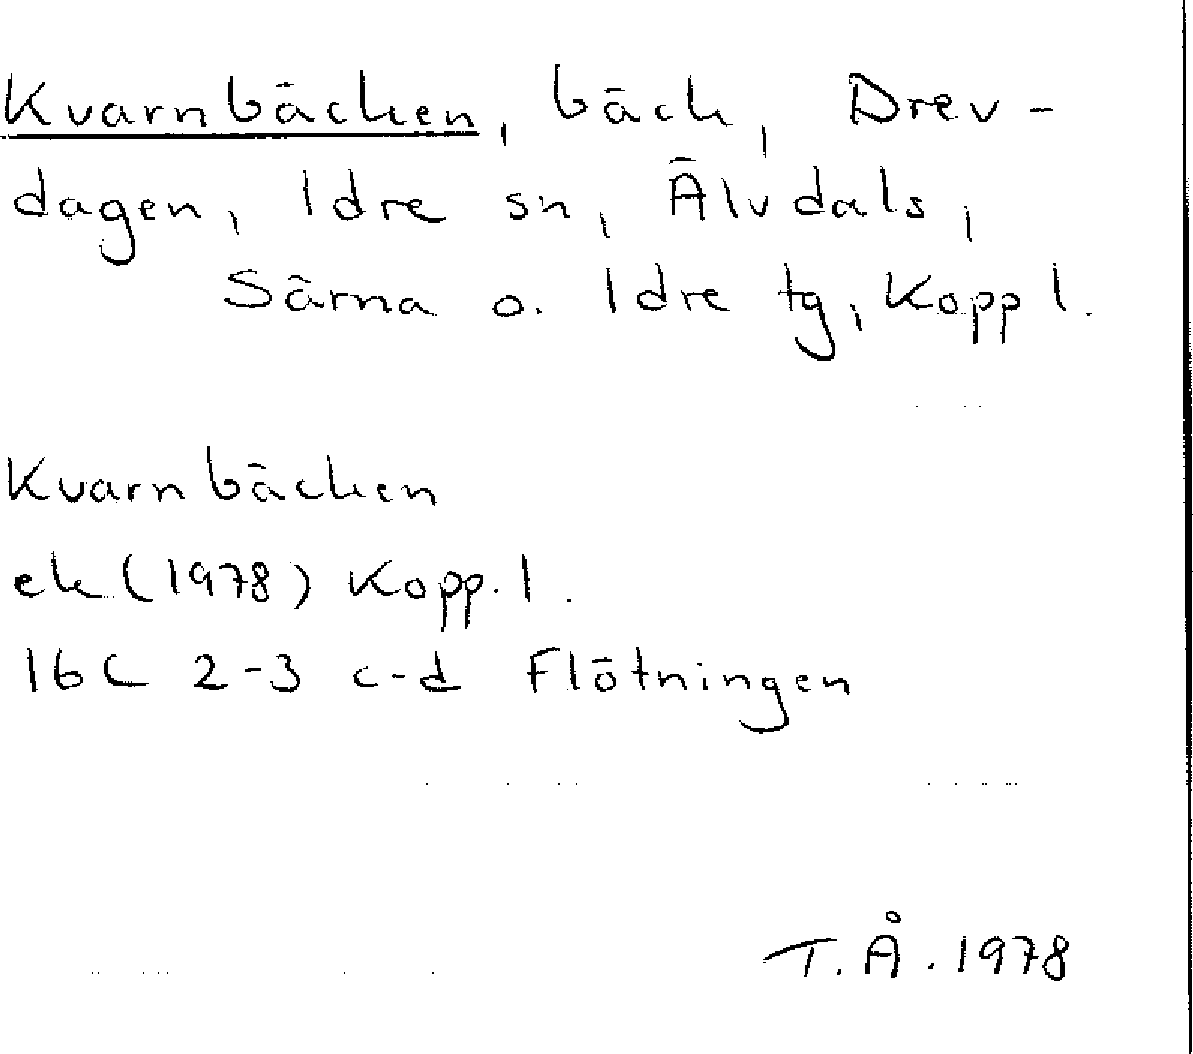 Kvarnbäcken, bäck, Drev-
dagen, Idre sn, Älvdals,
Särna o. Idre tg, Kopp l.
Kvarnbäcken
ek (1978) Kopp. l.
16C 2-3 c-d Flötningen
T.Å. 1978